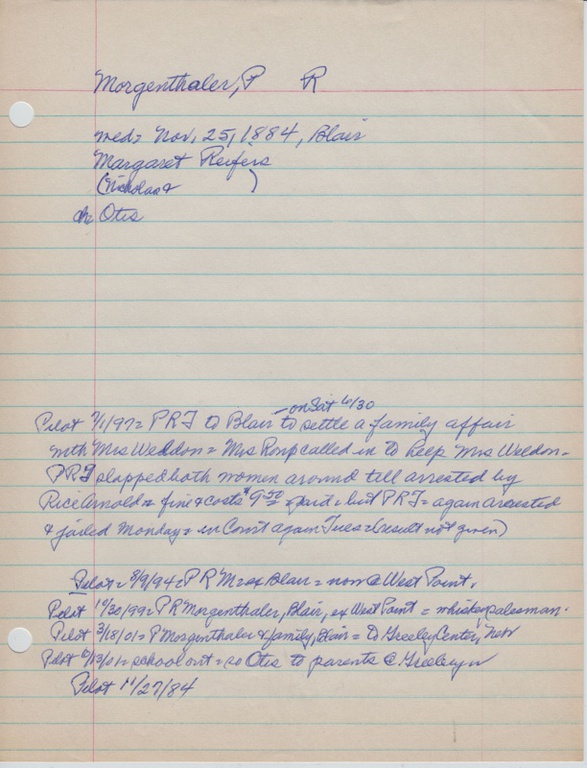 Morgenthaler, P R
med= Nov, 25, 1884, Blair
Margaret Reifers
(Nicholas & )
ch Otis
- on Sat 6/30
Pilot 7/1/97= PRJ to Blair to settle a family affair
with Mrs Weldon = Mrs called in to help Mrs Weldon-
PRJ slapped both women around till arrested by
Rice Arnold = fine & costs $9 = paid = but PRJ = again arrested
& jailed Monday = in Court again Tues = (result not given)
Pilot= 3/9/94= P R M= ex Blair = now @ West Point.
Pilot 10/30/99= P R Morgenthaler, Blair, ex West Point = whiskey salesman.
Pilot 3/18/01= P Morgenthaler & family, Blair = to Greeley Center, Neb
Pilot 6/13/01= school out = so Otis to parents @ Greeley
Pilot 11/27/84